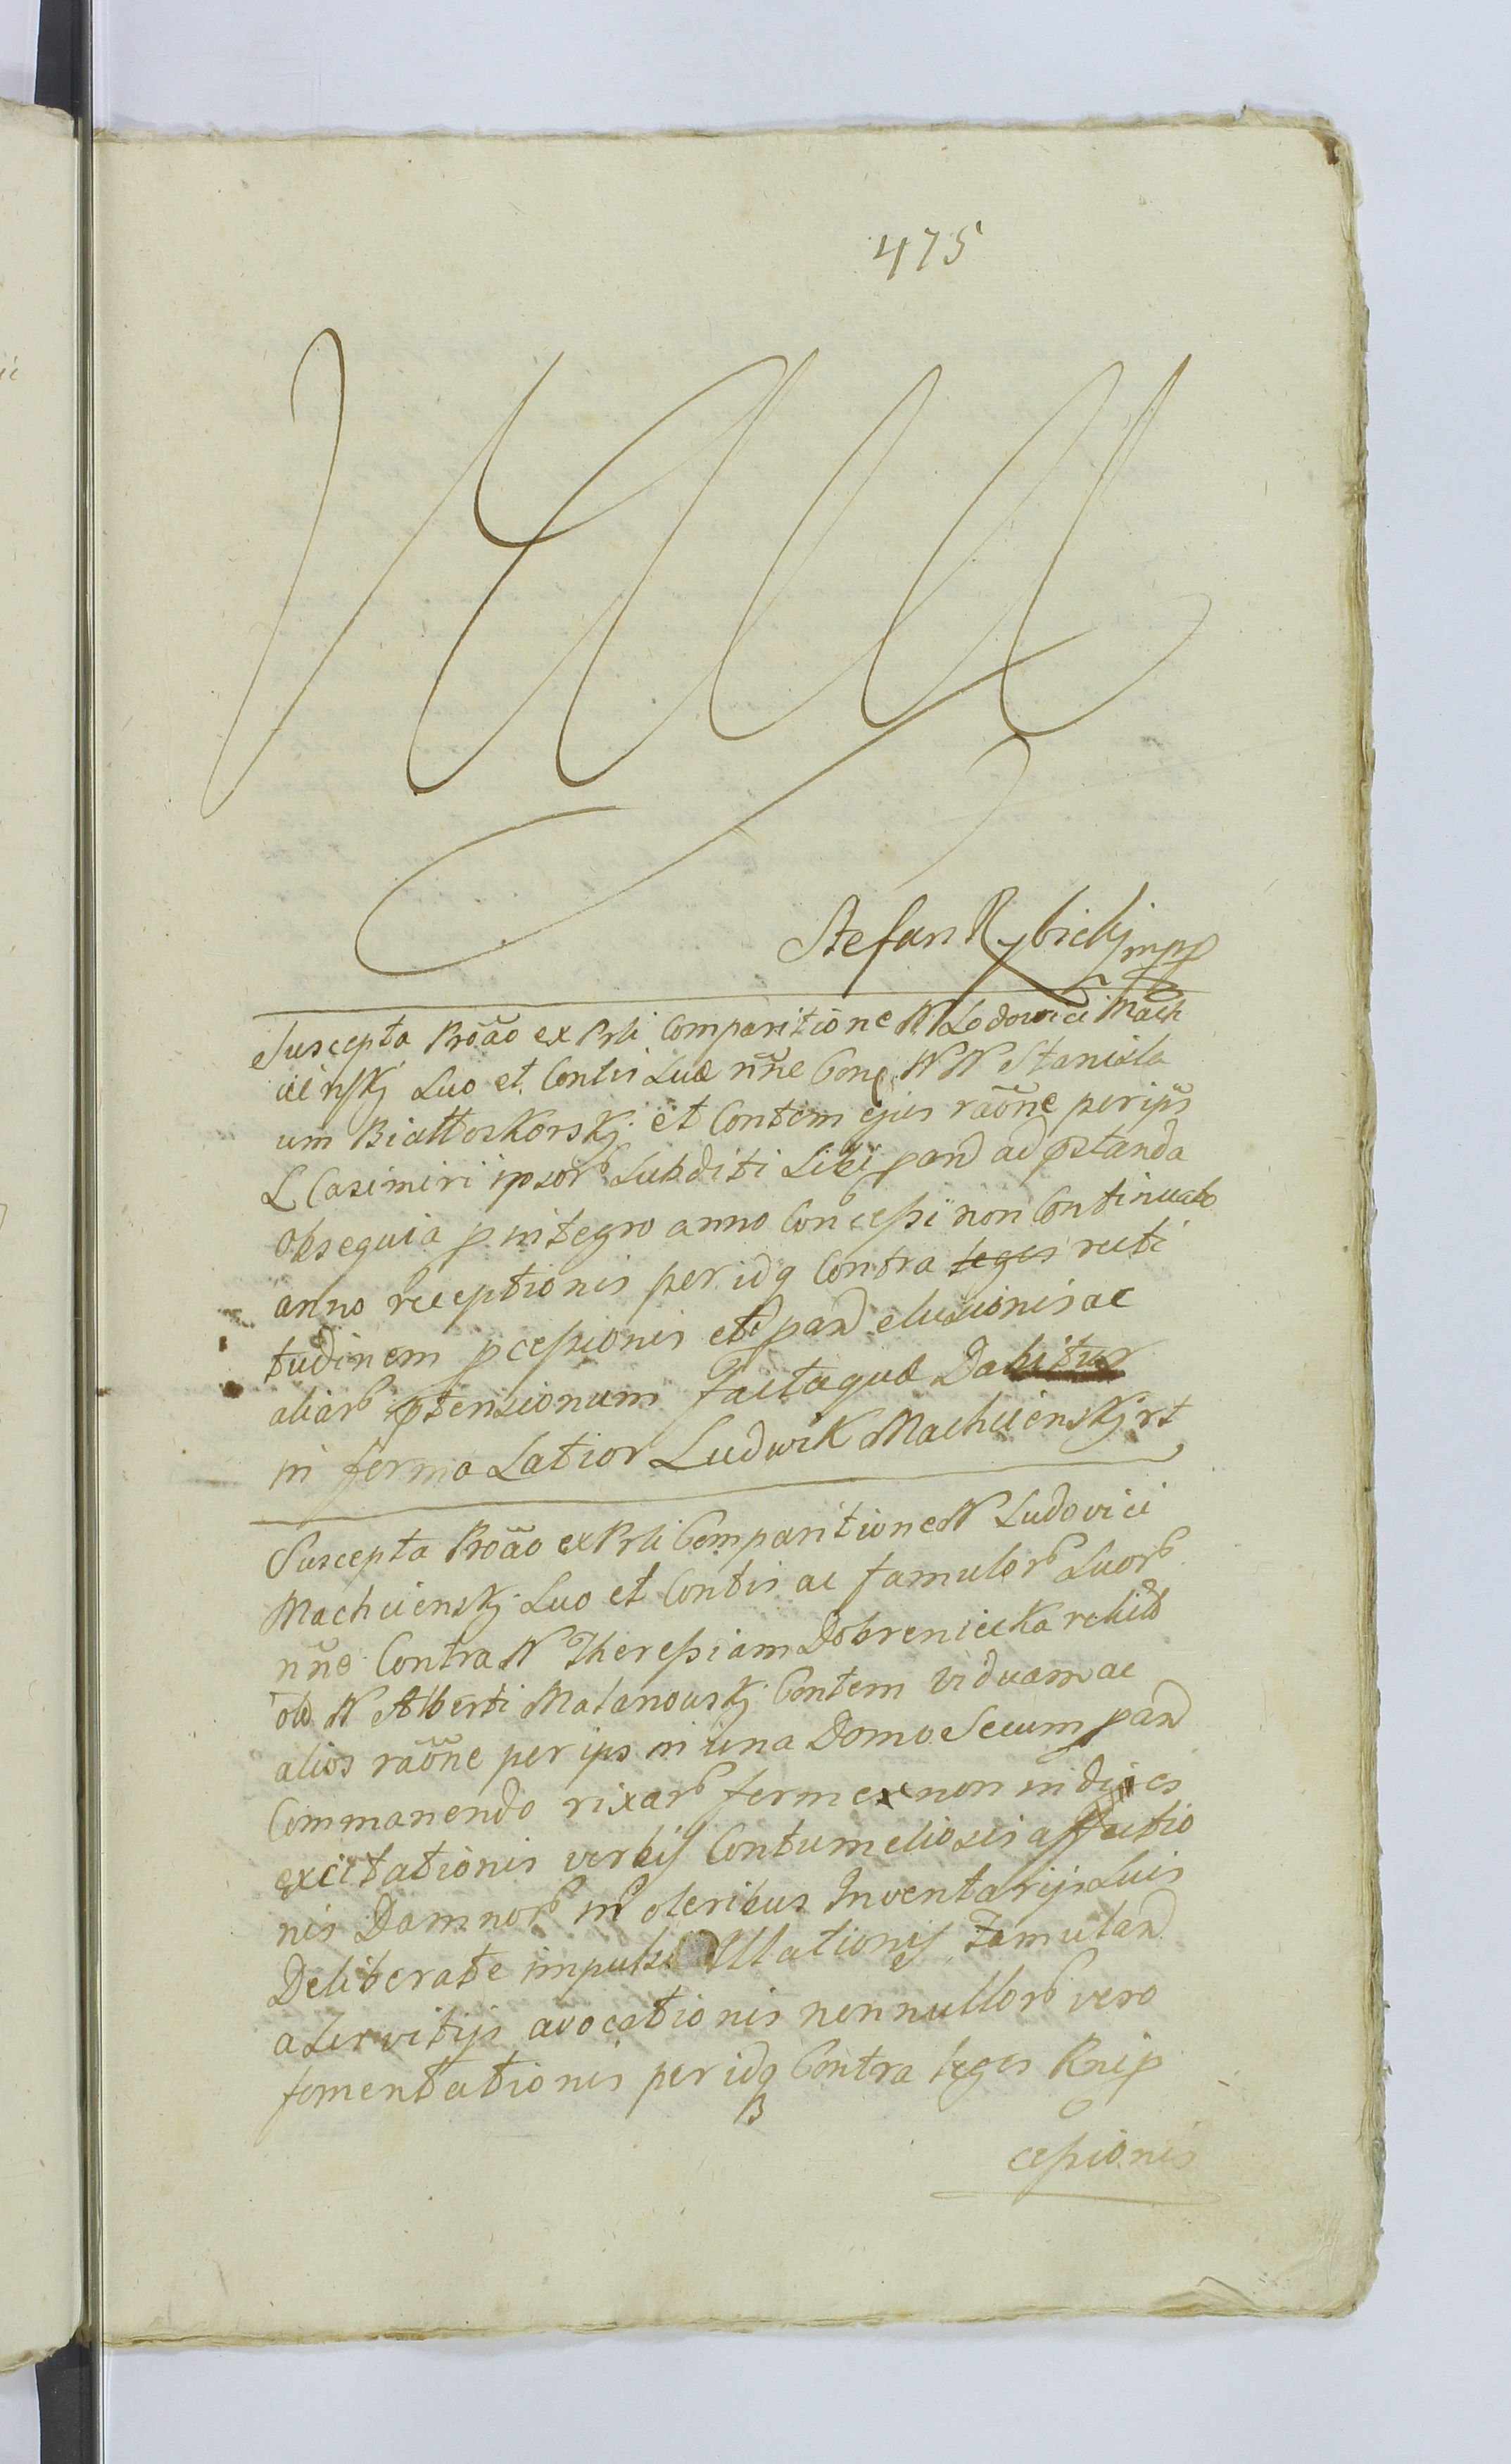 475
Stefan Rybickj mpp
Suscepta Prõão ex Prli Comparitione N Lodowici Mach
cinskj Suo et Contis Suæ nñe Con N N Stanisla
um Białłoskorskj et Contem ejus raõne per ips
L Casimiri ipsorb Subditi Sibi pard ad pstanda
Obsequia p integro anno Concessi non Continuato
anno receptionis per idq Contra leges recti
tudinem pcessionis pard elusionis ac
aliarb ptensionum Factaquæ Dabitur
in forma Latior Ludwik Machcienskj rt
Suscepta Prõão ex Prli Comparitione N Ludovici
Machcienskj Suo et Contis ac famulorb Suorb
nñe Contra N Theressiam Dobrenicka relict
olo N Alberti Matanouskj Contem viduam ac
alios raõne per ips in una Domo Secum pard
Commanendo rixarb ferme non in dies
excitationis verbis Contumeliosis affectio
nis Damnorb in oleribus Inventarijs Suis
Deliberate impulsi Illationis Famuland
a Servitijs avocationis nonnullorb vero
fomentationis per idq Contra leges Rnip
B
cessionis